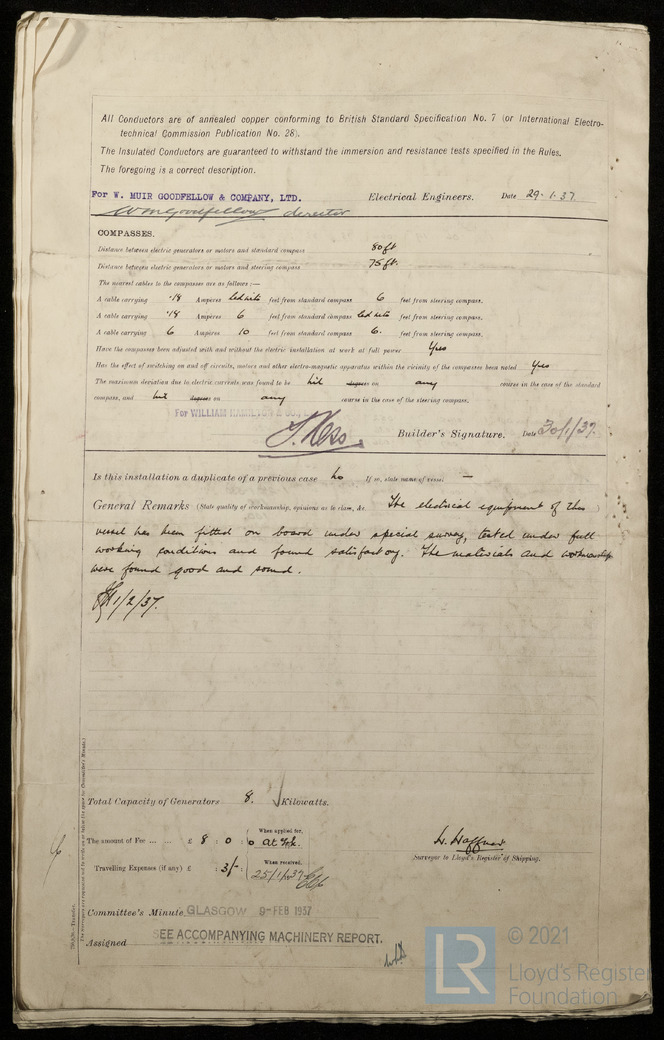 All Conductors are of annealed copper conforming to British Standard Specification No. 7 (or International Electro-
technical Commission Publication No. 28).
The Insulated Conductors are guaranteed to withstand the immersion and resistance tests specified in the Rules.
The foregoing is a correct description.
For W. MUIR GOODFELLOW & COMPANY, LTD. Electrical Engineers. Date 29.1.37.
Wm Goodfellow director
COMPASSES.
Distance between electric generators or motors and standard compass 80 ft
Distance between electric generators or motors and steering compass 75 ft.
The nearest cables to the compasses are as follows:—
A cable carrying ·18 Amperes led into feet from standard compass 6 feet from steering compass.
A cable carrying ·18 Amperes 6 feet from standard compass led into feet from steering compass.
A cable carrying 6 Amperes 10 feet from standard compass 6. feet from steering compass.
Have the compasses been adjusted with and without the electric installation at work at full power Yes
Has the effect of switching on and off circuits, motors and other electro-magnetic apparatus within the vicinity of the compasses been noted Yes
The maximum deviation due to electric currents was found to be nil degrees on any course in the case of the standard
compass, and nil degrees on any course in the case of the steering compass.
For WILLIAM HAMILTON & CO.,
Builder's Signature. Date 30/1/37.
Is this installation a duplicate of a previous case no If so, state name of vessel —
General Remarks (State quality of workmanship, opinions as to class, &c. The electrical equipment of this
vessel has been fitted on board under special survey, tested under full
working conditions and found satisfactory. The materials and workmanship
were found good and sound.
1/2/37.
Total Capacity of Generators 8. Kilowatts.
The amount of Fee ... ... £ 8 : 0 : 0 When applied for,
Travelling Expenses (if any) £ : 3/- : When received,
25/1/37
Surveyor to Lloyd's Register of Shipping.
Committee's Minute GLASGOW 9-FEB 1937
Assigned SEE ACCOMPANYING MACHINERY REPORT.
LR © 2021
Lloyd's Register
Foundation